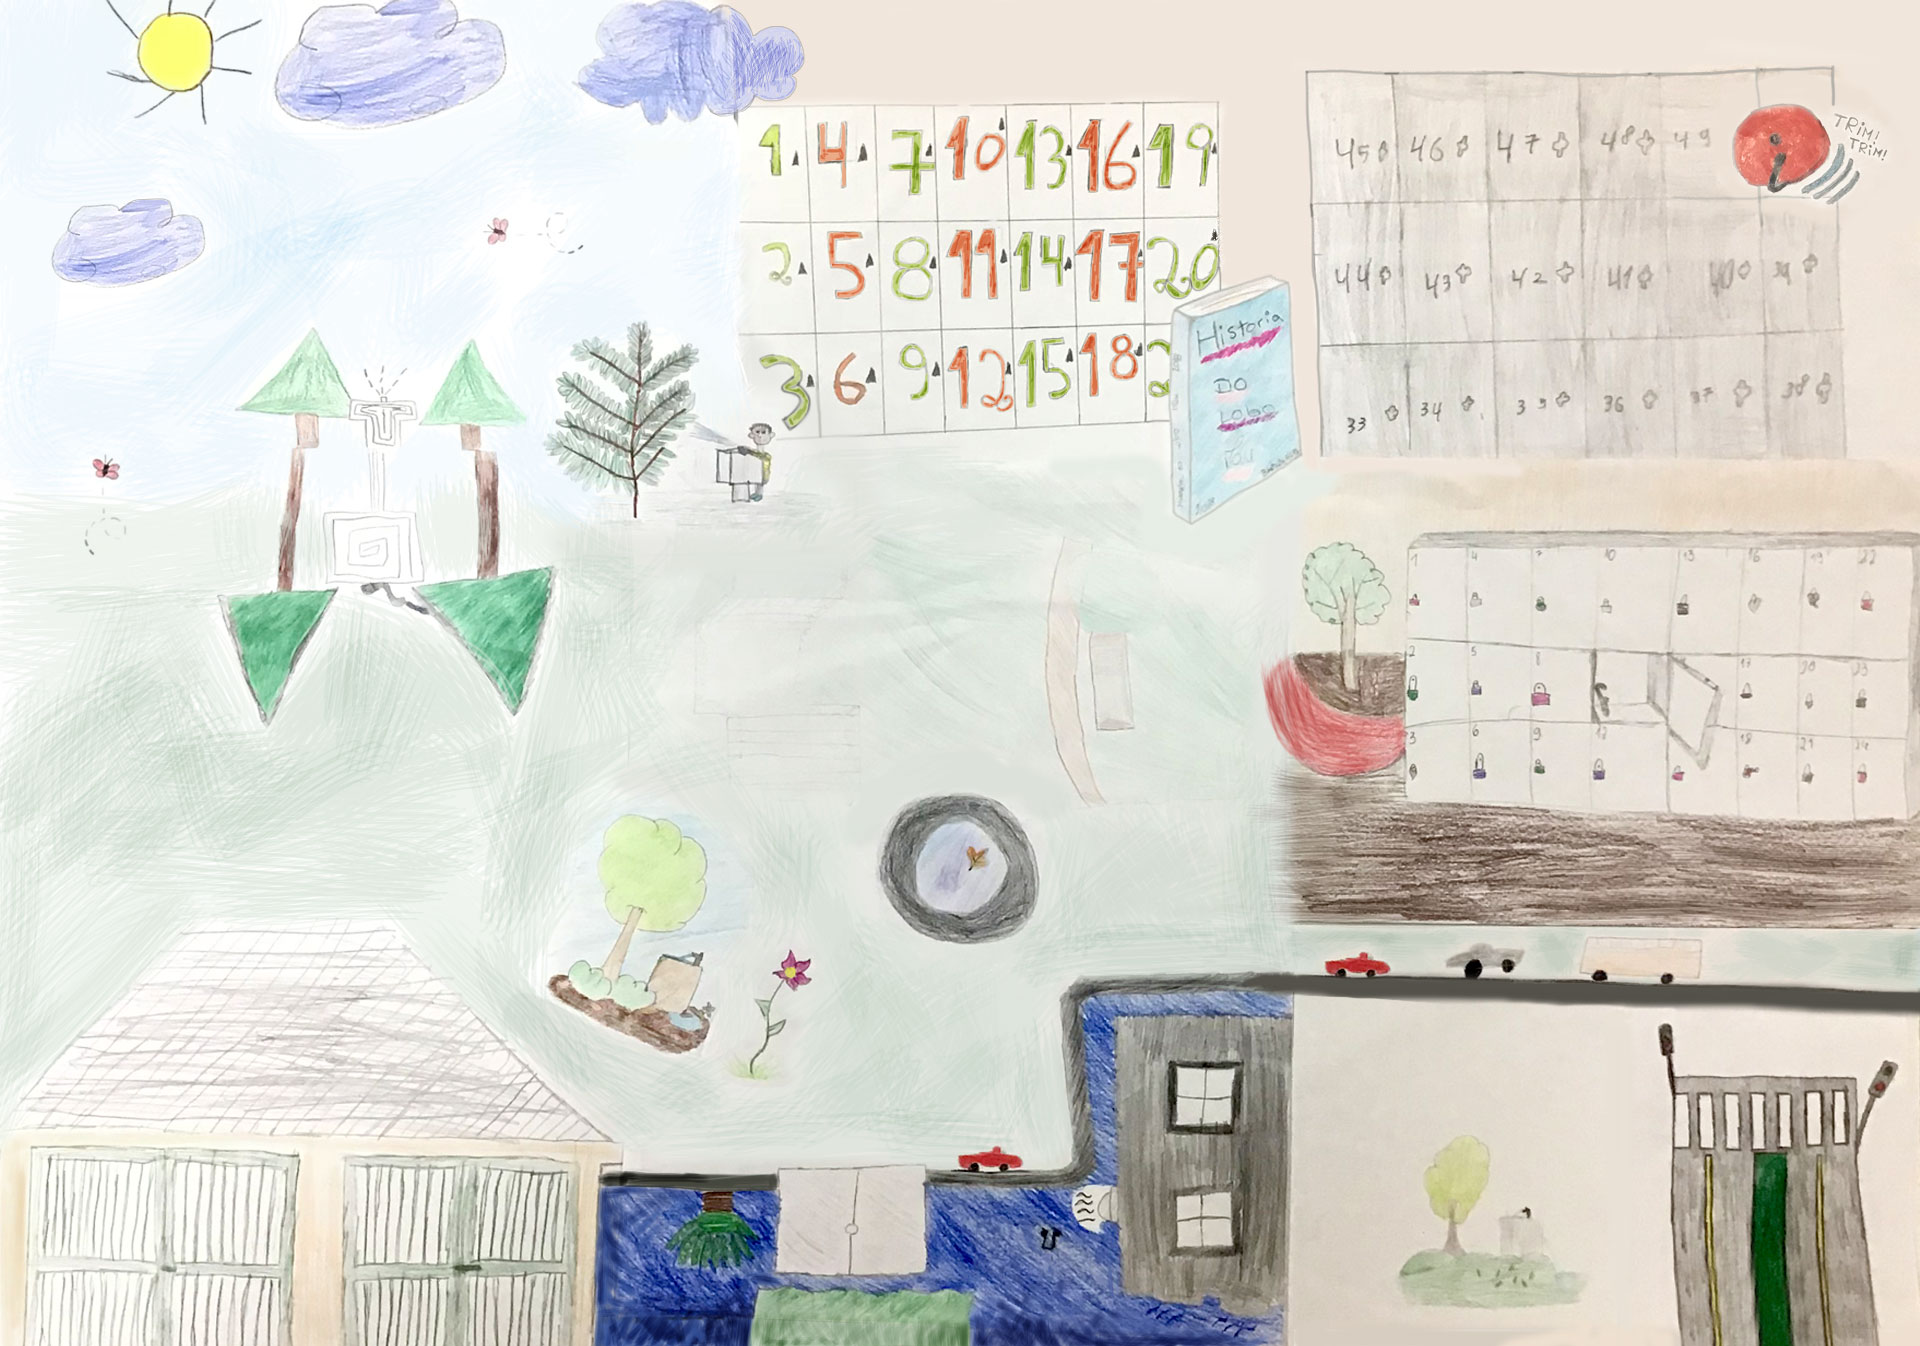 1 4 7 10 13 16 19
2 5 8 11 14 17 20
3 6 9 12 15 18 2
Historia
DO
Lobo
45 46 47 48 49
44 43 42 41 40 39
33 34 35 36 37 38
TRiM!
TRiM!
1 4 7 10 13 16 19 22
2 5 8 17 20 23
3 6 9 12 18 21 24